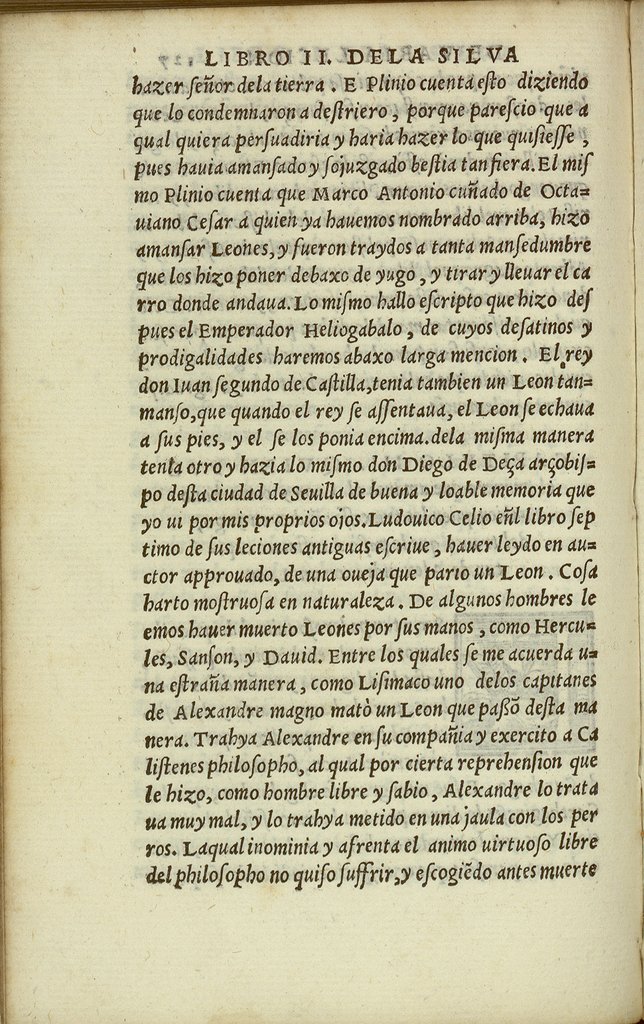 LIBRO II. DELA SILVA
hazer ſeñor dela tierra. E Plinio cuenta eſto diziendo
que lo condemnaron a deſtriero, porque pareſcio que a
qual quiera perſuadiria y haria hazer lo que quiſieſſe,
pues havia amanſado y ſojuzgado beſtia tan fiera. El miſ
mo Plinio cuenta que Marco Antonio cuñado de Octa=
uiano Ceſar a quien ya hauemos nombrado arriba, hizo
amanſar Leones, y fueron traydos a tanta manſedumbre
que los hizo poner debaxo de yugo, y tirar y lleuar el ca
rro donde andaua. Lo miſmo hallo eſcripto que hizo deſ
pues el Emperador Heliogabalo, de cuyos deſatinos y
prodigalidades haremos abaxo larga mencion. El rey
don Iuan ſegundo de Caſtilla, tenia tambien un Leon tan=
manſo, que quando el rey ſe aſſentaua, el Leon ſe echaua
a ſus pies, y el ſe los ponia encima. dela miſma manera
tenia otro y hazia lo miſmo don Diego de Deça arçobiſ=
po deſta ciudad de Seuilla de buena y loable memoria que
yo ui por mis proprios ojos. Ludouico Celio eñl libro ſep
timo de ſus leciones antiguas eſcriue, hauer leydo en au=
ctor approuado, de una oueja que pario un Leon. Coſa
harto moſtruoſa en naturaleza. De algunos hombres le
emos hauer muerto Leones por ſus manos, como Hercu=
les, Sanſon, y David. Entre los quales ſe me acuerda u=
na eſtraña manera, como Liſimaco uno delos capitanes
de Alexandre magno matò un Leon que paßõ deſta ma
nera. Trahya Alexandre en ſu compañia y exercito a Ca
liſtenes philoſopho, al qual por cierta reprehenſion que
le hizo, como hombre libre y ſabio, Alexandre lo trata
ua muy mal, y lo trahya metido en una jaula con los per
ros. Laqual inominia y afrenta el animo uirtuoſo libre
del philoſopho no quiſo ſuffrir, y eſcogiẽdo antes muerte